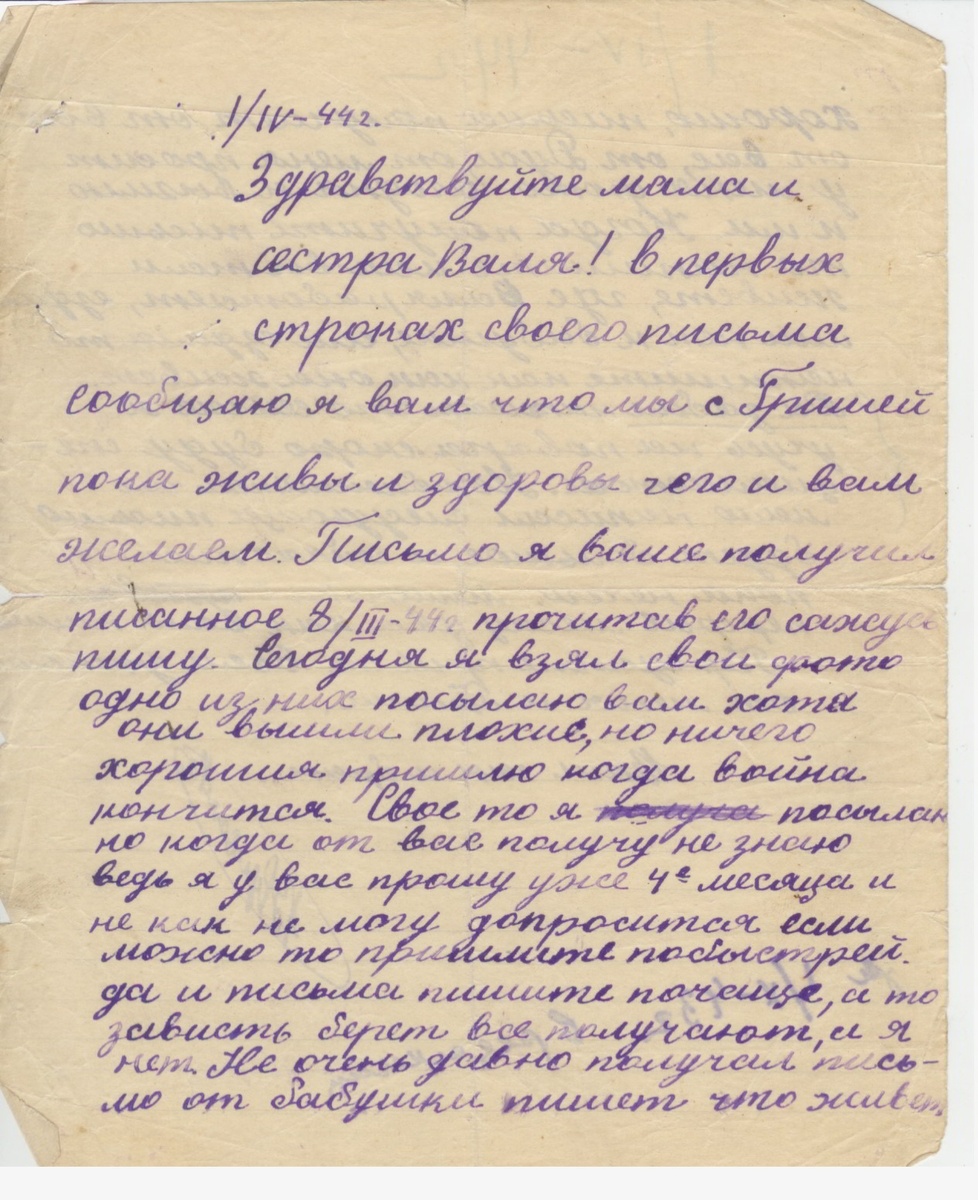 1/IV-44 г.
Здравствуйте мама и
сестра Валя! в первых
строках своего письма
сообщаю я вам что мы с Гришей
пока живы и здоровы чего и вам
желаем. Письмо я ваше получил
писанное 8/III-44 г прочитав его сажусь
пишу. Сегодня я взял свои фото
одно из них посылаю вам хотя
они вышли плохие, но ничего
хорошия пришлю когда война
кончится. Свое то я посылаю
но когда от вас получу не знаю
ведь я у вас прошу уже 4е месяца и
не как не могу допросится если
можно то пришлите побыстрей.
да и письма пишите почаще, а то
зависть берет все получают, а я
нет. Не очень давно получил пись-
мо от бабушки пишет что живет